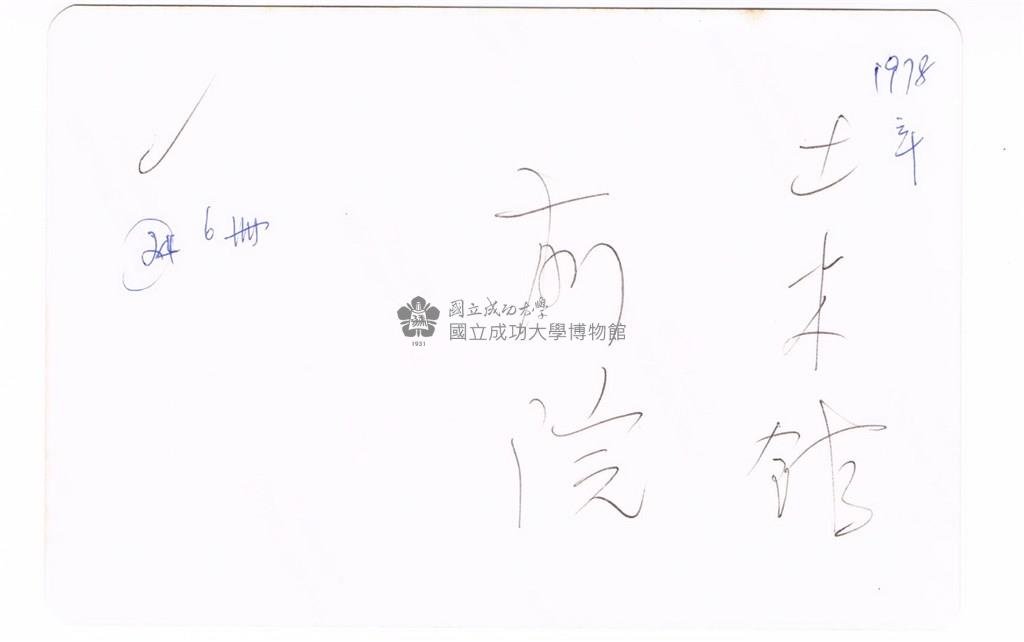 1978年
土木館
前院
6冊
國立成功大學
國立成功大學博物館
1931